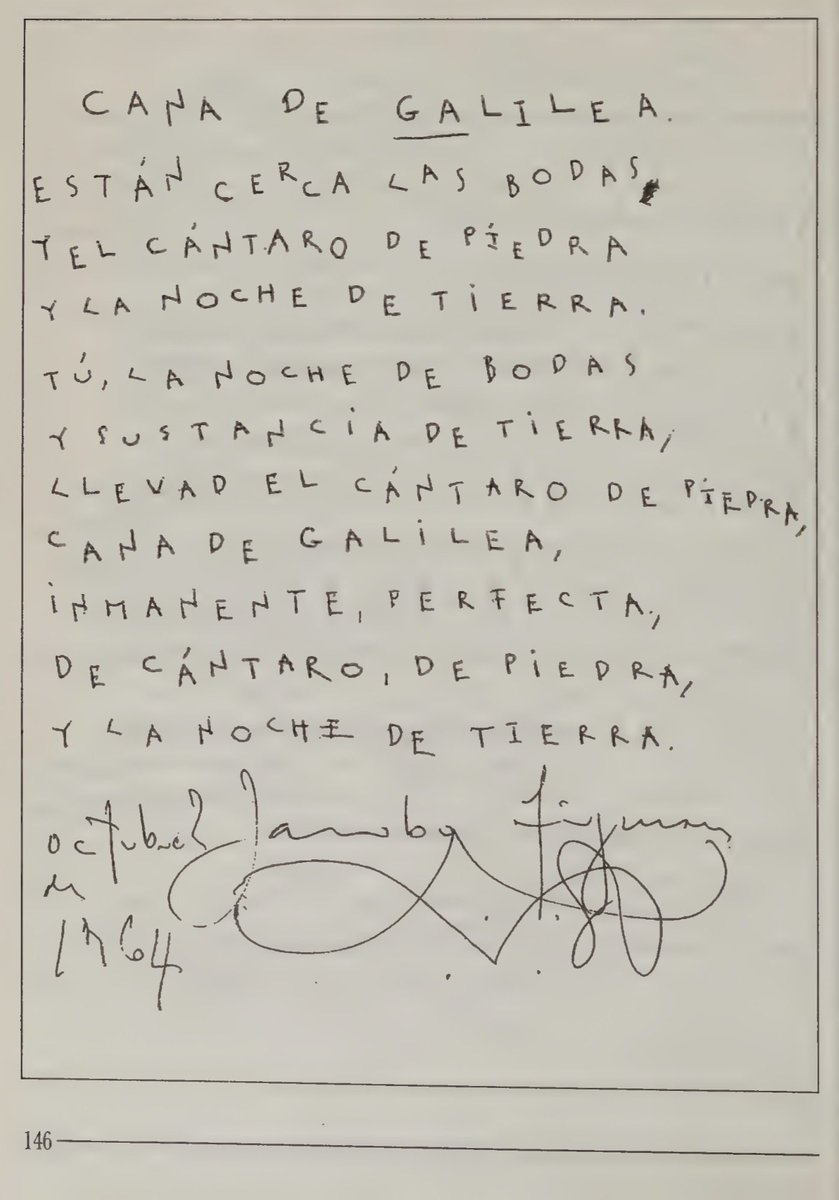 CANA DE GALILEA.
ESTÁN CERCA LAS BODAS,
Y EL CÁNTARO DE PIEDRA
Y LA NOCHE DE TIERRA.
TÚ, LA NOCHE DE BODAS
Y SUSTANCIA DE TIERRA,
LLEVAD EL CÁNTARO DE PIEDRA,
CANA DE GALILEA,
INMANENTE, PERFECTA,
DE CÁNTARO, DE PIEDRA,
Y LA NOCHE DE TIERRA.
octubre Jacobo Fijman
de
1964
146